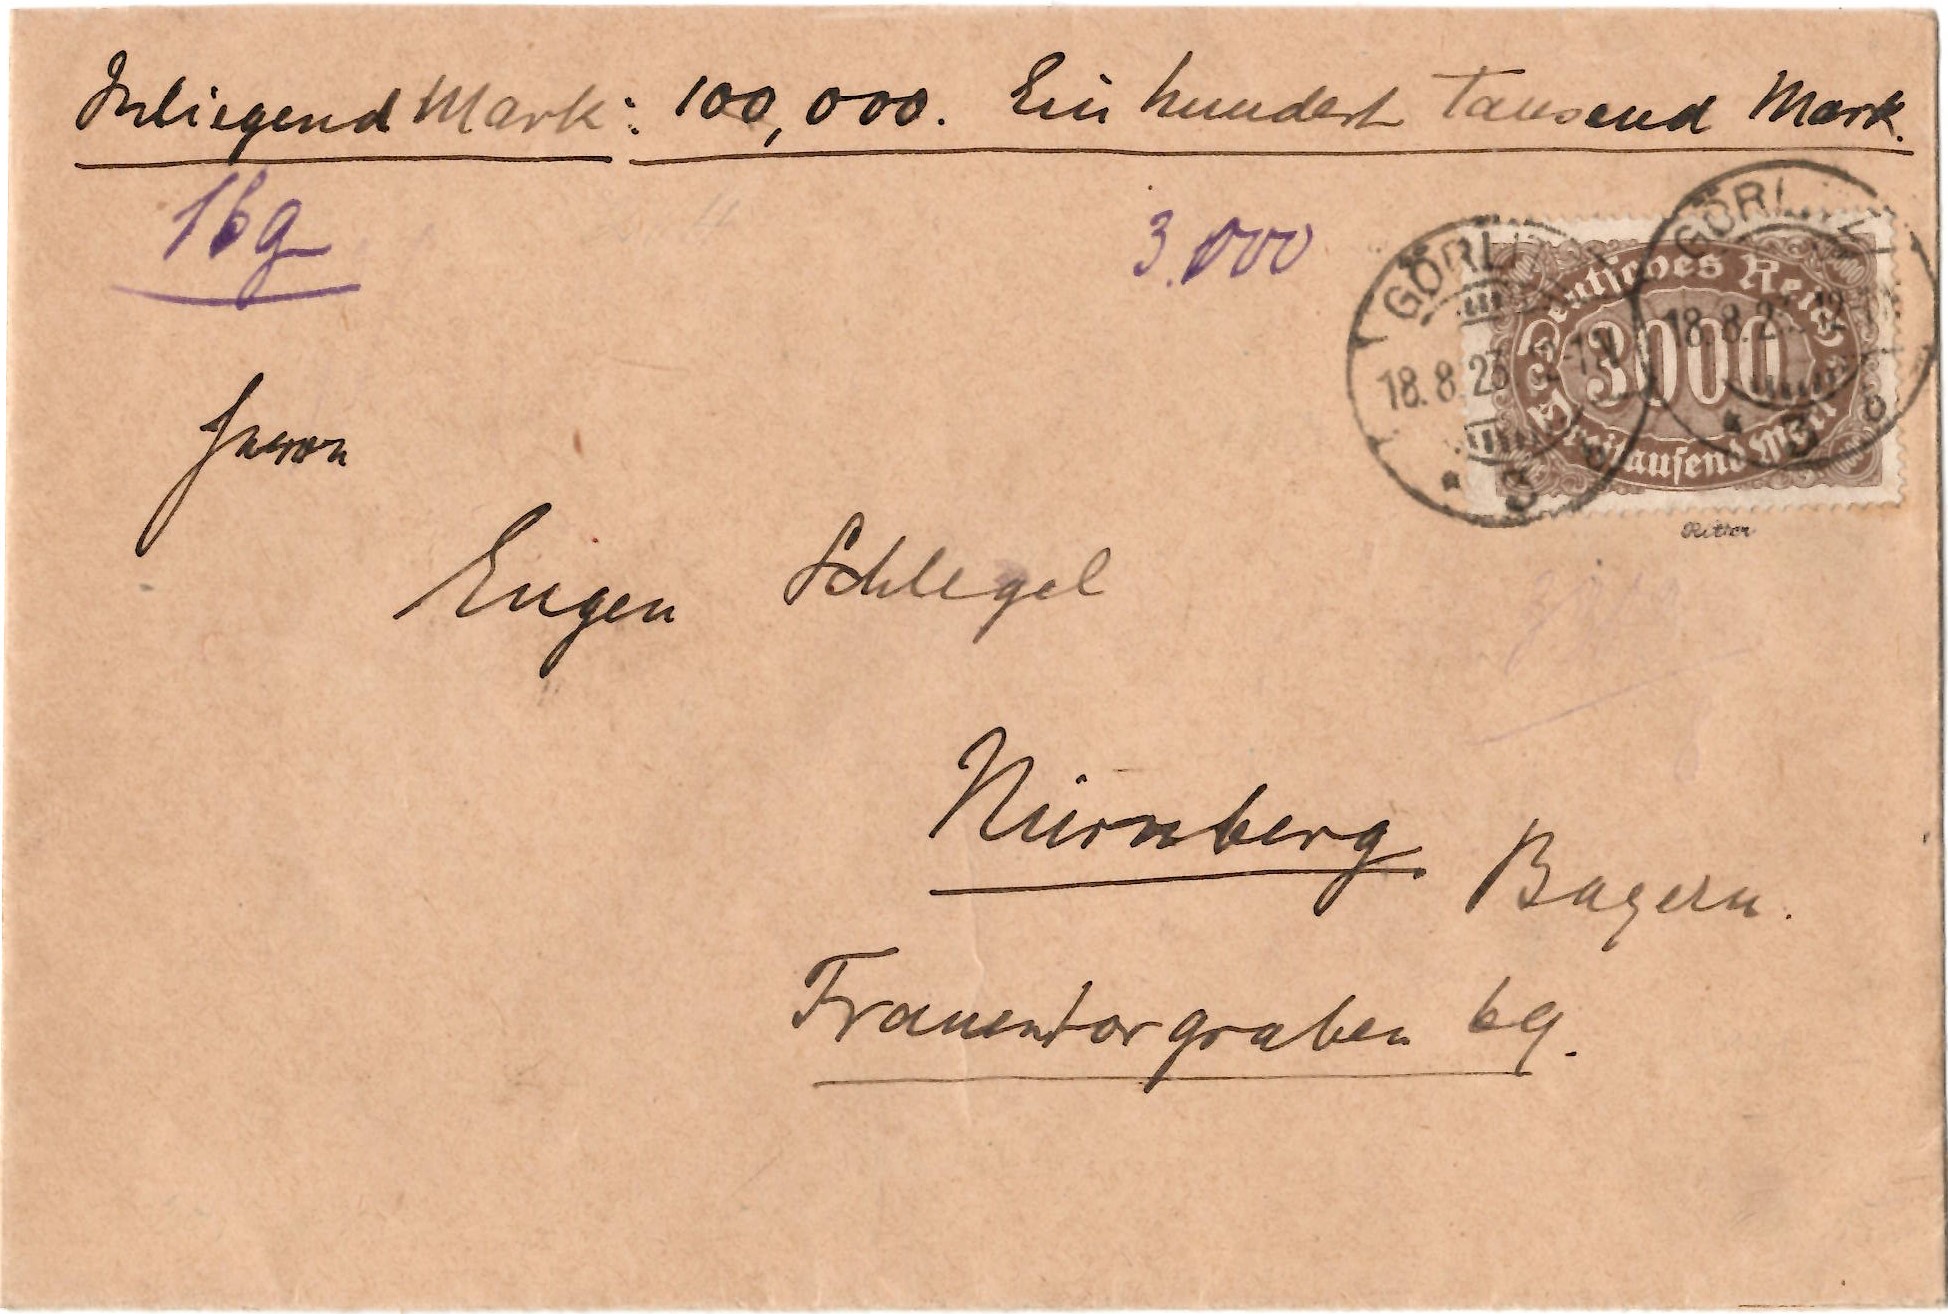 Inliegend Mark: 100,000. Ein hundert tausend Mark.
16g
3.000
GÖRLI
18.8.23
* 3 b
GÖRLI
18.8.2
* 3 b
Deutsches Reich
3000
Dreitausend Mark
Ritter
Herrn
Eugen Schlegel
Nürnberg Bayern.
Frauentorgraben 69.